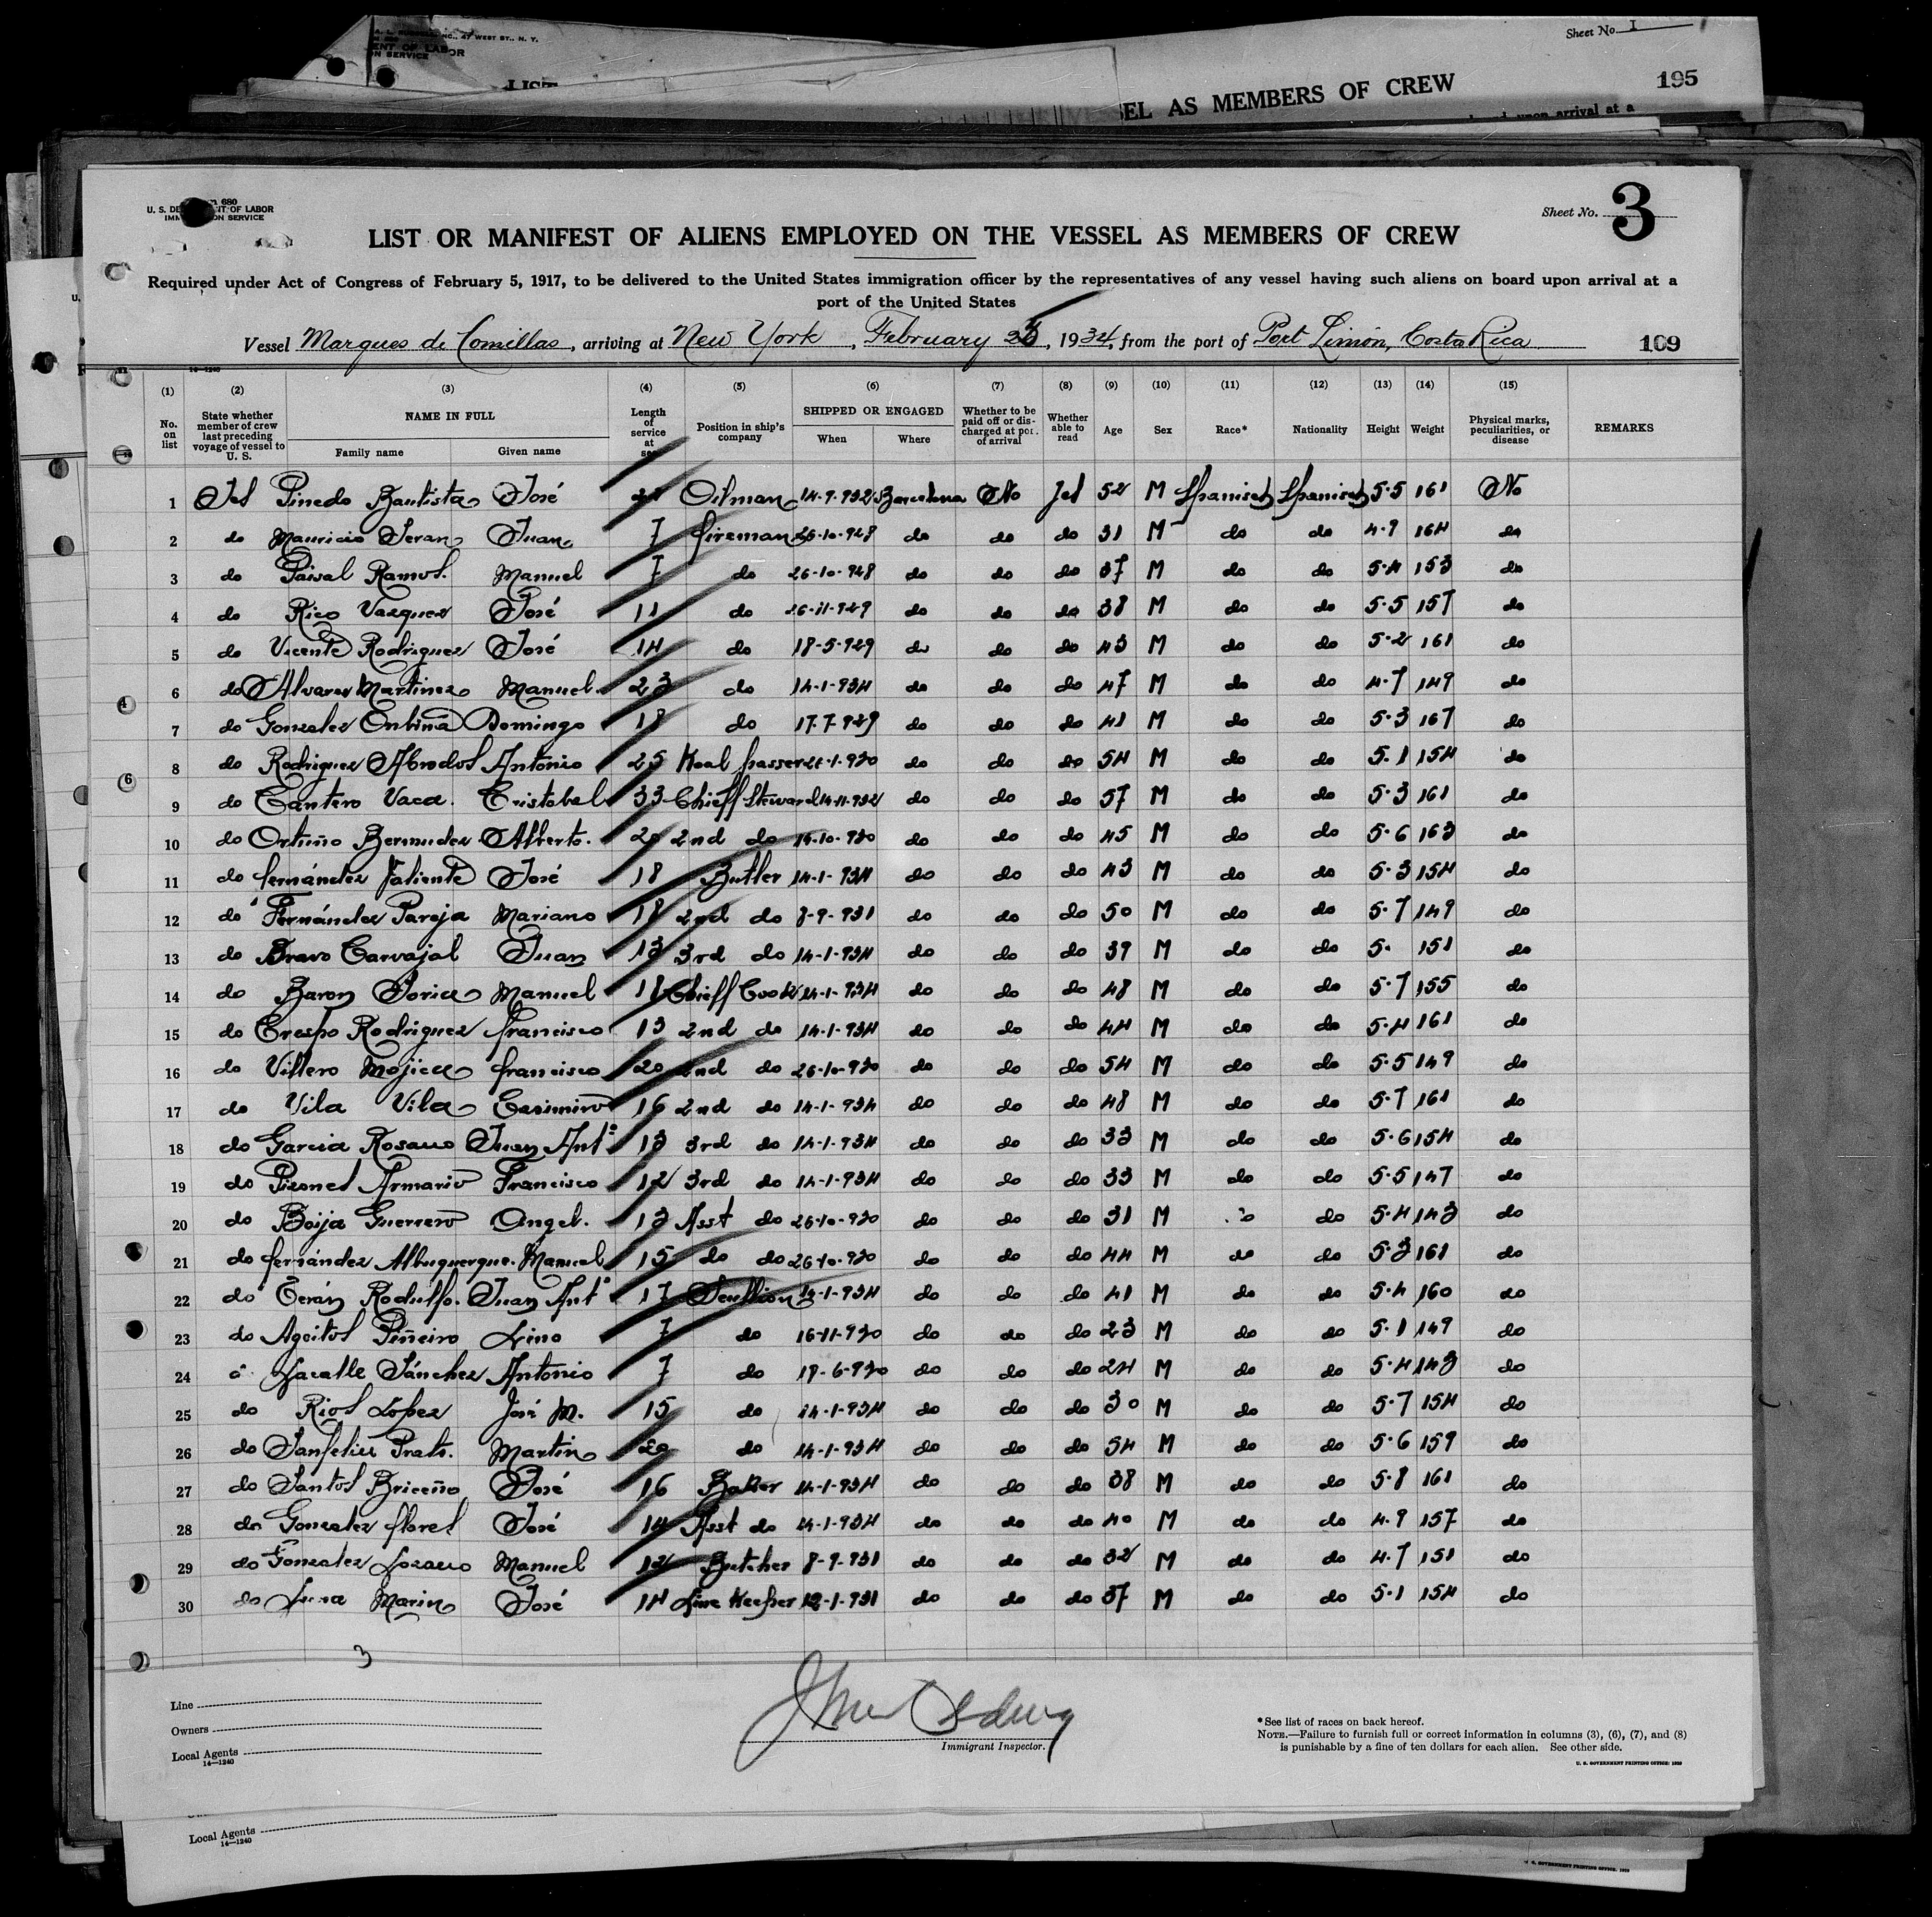 A. L. NC., 47 WEST ST., N. Y.
ENT OF LABOR
ON SERVICE
LIST
Sheet No. 1
SEL AS MEMBERS OF CREW
195
upon arrival at a
680
U. S. DE NT OF LABOR
IMM ON SERVICE
Sheet No. 3
LIST OR MANIFEST OF ALIENS EMPLOYED ON THE VESSEL AS MEMBERS OF CREW
Required under Act of Congress of February 5, 1917, to be delivered to the United States immigration officer by the representatives of any vessel having such aliens on board upon arrival at a
port of the United States
Vessel Marques de Comillas, arriving at New York, February 25, 1934, from the port of Port Limón, Costa Rica
109
14—1240
(1) (2) (3) (4) (5) (6) (7) (8) (9) (10) (11) (12) (13) (14) (15)
No. on list State whether member of crew last preceding voyage of vessel to U. S. NAME IN FULL Family name Given name Length of service at sea Position in ship's company SHIPPED OR ENGAGED When Where Whether to be paid off or discharged at port of arrival Whether able to read Age Sex Race* Nationality Height Weight Physical marks, peculiarities, or disease REMARKS
1 Pinedo Bautista José Oilman 14-9-932 Barcelona No 52 M 5.5 161 No
2 do Mauricio Teran Juan 7 fireman 26-10-928 do do do 31 M do do 4.9 164 do
3 do Ramos. Manuel 7 do 26-10-928 do do do 37 M do do 5.4 153 do
4 do Rico Vazquez José 11 do 26-11-929 do do do 38 M do do 5.5 157 do
5 do Vicente Rodriguez José 14 do 18-5-929 do do do 43 M do do 5.2 161 do
6 do Alvarez Martinez Manuel. 23 do 14-1-934 do do do 47 M do do 4.7 149 do
7 do Gonzalez Domingo 18 do 17-7-929 do do do 41 M do do 5.3 167 do
8 do Rodriguez Antonio 25 Koal passer 930 do do do 54 M do do 5.1 154 do
9 do Cantero Vaca. Cristobal 33 Chieff Steward 14-11-932 do do do 57 M do do 5.3 161 do
10 do Ortuño Bermudez Alberto. 20 2nd do 930 do do do 45 M do do 5.6 163 do
11 do fernández Valiente José 18 Butler 14-1-934 do do do 43 M do do 5.3 154 do
12 do Fernández Pareja Mariano 18 2nd do 8-9-931 do do do 50 M do do 5.7 149 do
13 do Bravo Carvajal Juan 13 3rd do 14-1-934 do do do 39 M do do 5. 151 do
14 do Baron Soria Manuel 18 Chieff Cook 14-1-934 do do do 48 M do do 5.7 155 do
15 do Crespo Rodriguez francisco 13 2nd do 14-1-934 do do do 44 M do do 5.4 161 do
16 do Villero Mojica francisco 20 2nd do 26-10-930 do do do 54 M do do 5.5 149 do
17 do Vila Vila Casimiro 16 2nd do 14-1-934 do do do 48 M do do 5.7 161 do
18 do Garcia Juan Antº 13 3rd do 14-1-934 do do do 33 M do do 5.6 154 do
19 do Armario Francisco 12 3rd do 14-1-934 do do do 33 M do do 5.5 147 do
20 do Guerrero Angel. 13 Asst do 26-10-930 do do do 31 M do do 5.4 143 do
21 do fernández Albuquerque. Manuel 15 do do 26-10-930 do do do 44 M do do 5.3 161 do
22 do Terán Rodulfo. Juan Antº 17 Scullion 14-1-934 do do do 41 M do do 5.4 160 do
23 do Ageitos Piñeiro Lino 7 do 16-11-930 do do do 23 M do do 5.1 149 do
24 Lacalle Sánchez Antonio 7 do 19-6-930 do do do 24 M do do 5.4 143 do
25 do Rios Lopez José M. 15 do 14-1-934 do do do 30 M do do 5.7 154 do
26 do Sanfeliu Prats. Martin 20 do 14-1-934 do do do 54 M do do 5.6 159 do
27 do Santos Briceño José 16 Baker 14-1-934 do do do 38 M do do 5.8 161 do
28 do Gonzalez flores José 14 Asst do 14-1-934 do do do 40 M do do 4.9 157 do
29 do Gonzalez Lozano Manuel 12 Butcher 8-9-931 do do do 32 M do do 4.7 151 do
30 do Marin José 14 Keeper 12-1-931 do do do 37 M do do 5.1 154 do
3
Line
Owners
Local Agents
14—1240
Immigrant Inspector.
*See list of races on back hereof.
NOTE.—Failure to furnish full or correct information in columns (3), (6), (7), and (8)
is punishable by a fine of ten dollars for each alien. See other side.
U. S. GOVERNMENT PRINTING OFFICE: 1929
Local Agents
14—1240